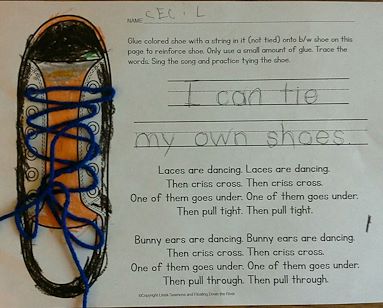 NAME CECiL
Glue colored shoe with a string in it (not tied) onto b/w shoe on this
page to reinforce shoe. Only use a small amount of glue. Trace the
words. Sing the song and practice tying the shoe.
I can tie
my own shoes.
Laces are dancing. Laces are dancing.
Then criss cross. Then criss cross.
One of them goes under. One of them goes under.
Then pull tight. Then pull tight.
Bunny ears are dancing. Bunny ears are dancing.
Then criss cross. Then criss cross.
One of them goes under. One of them goes under.
Then pull through. Then pull through.